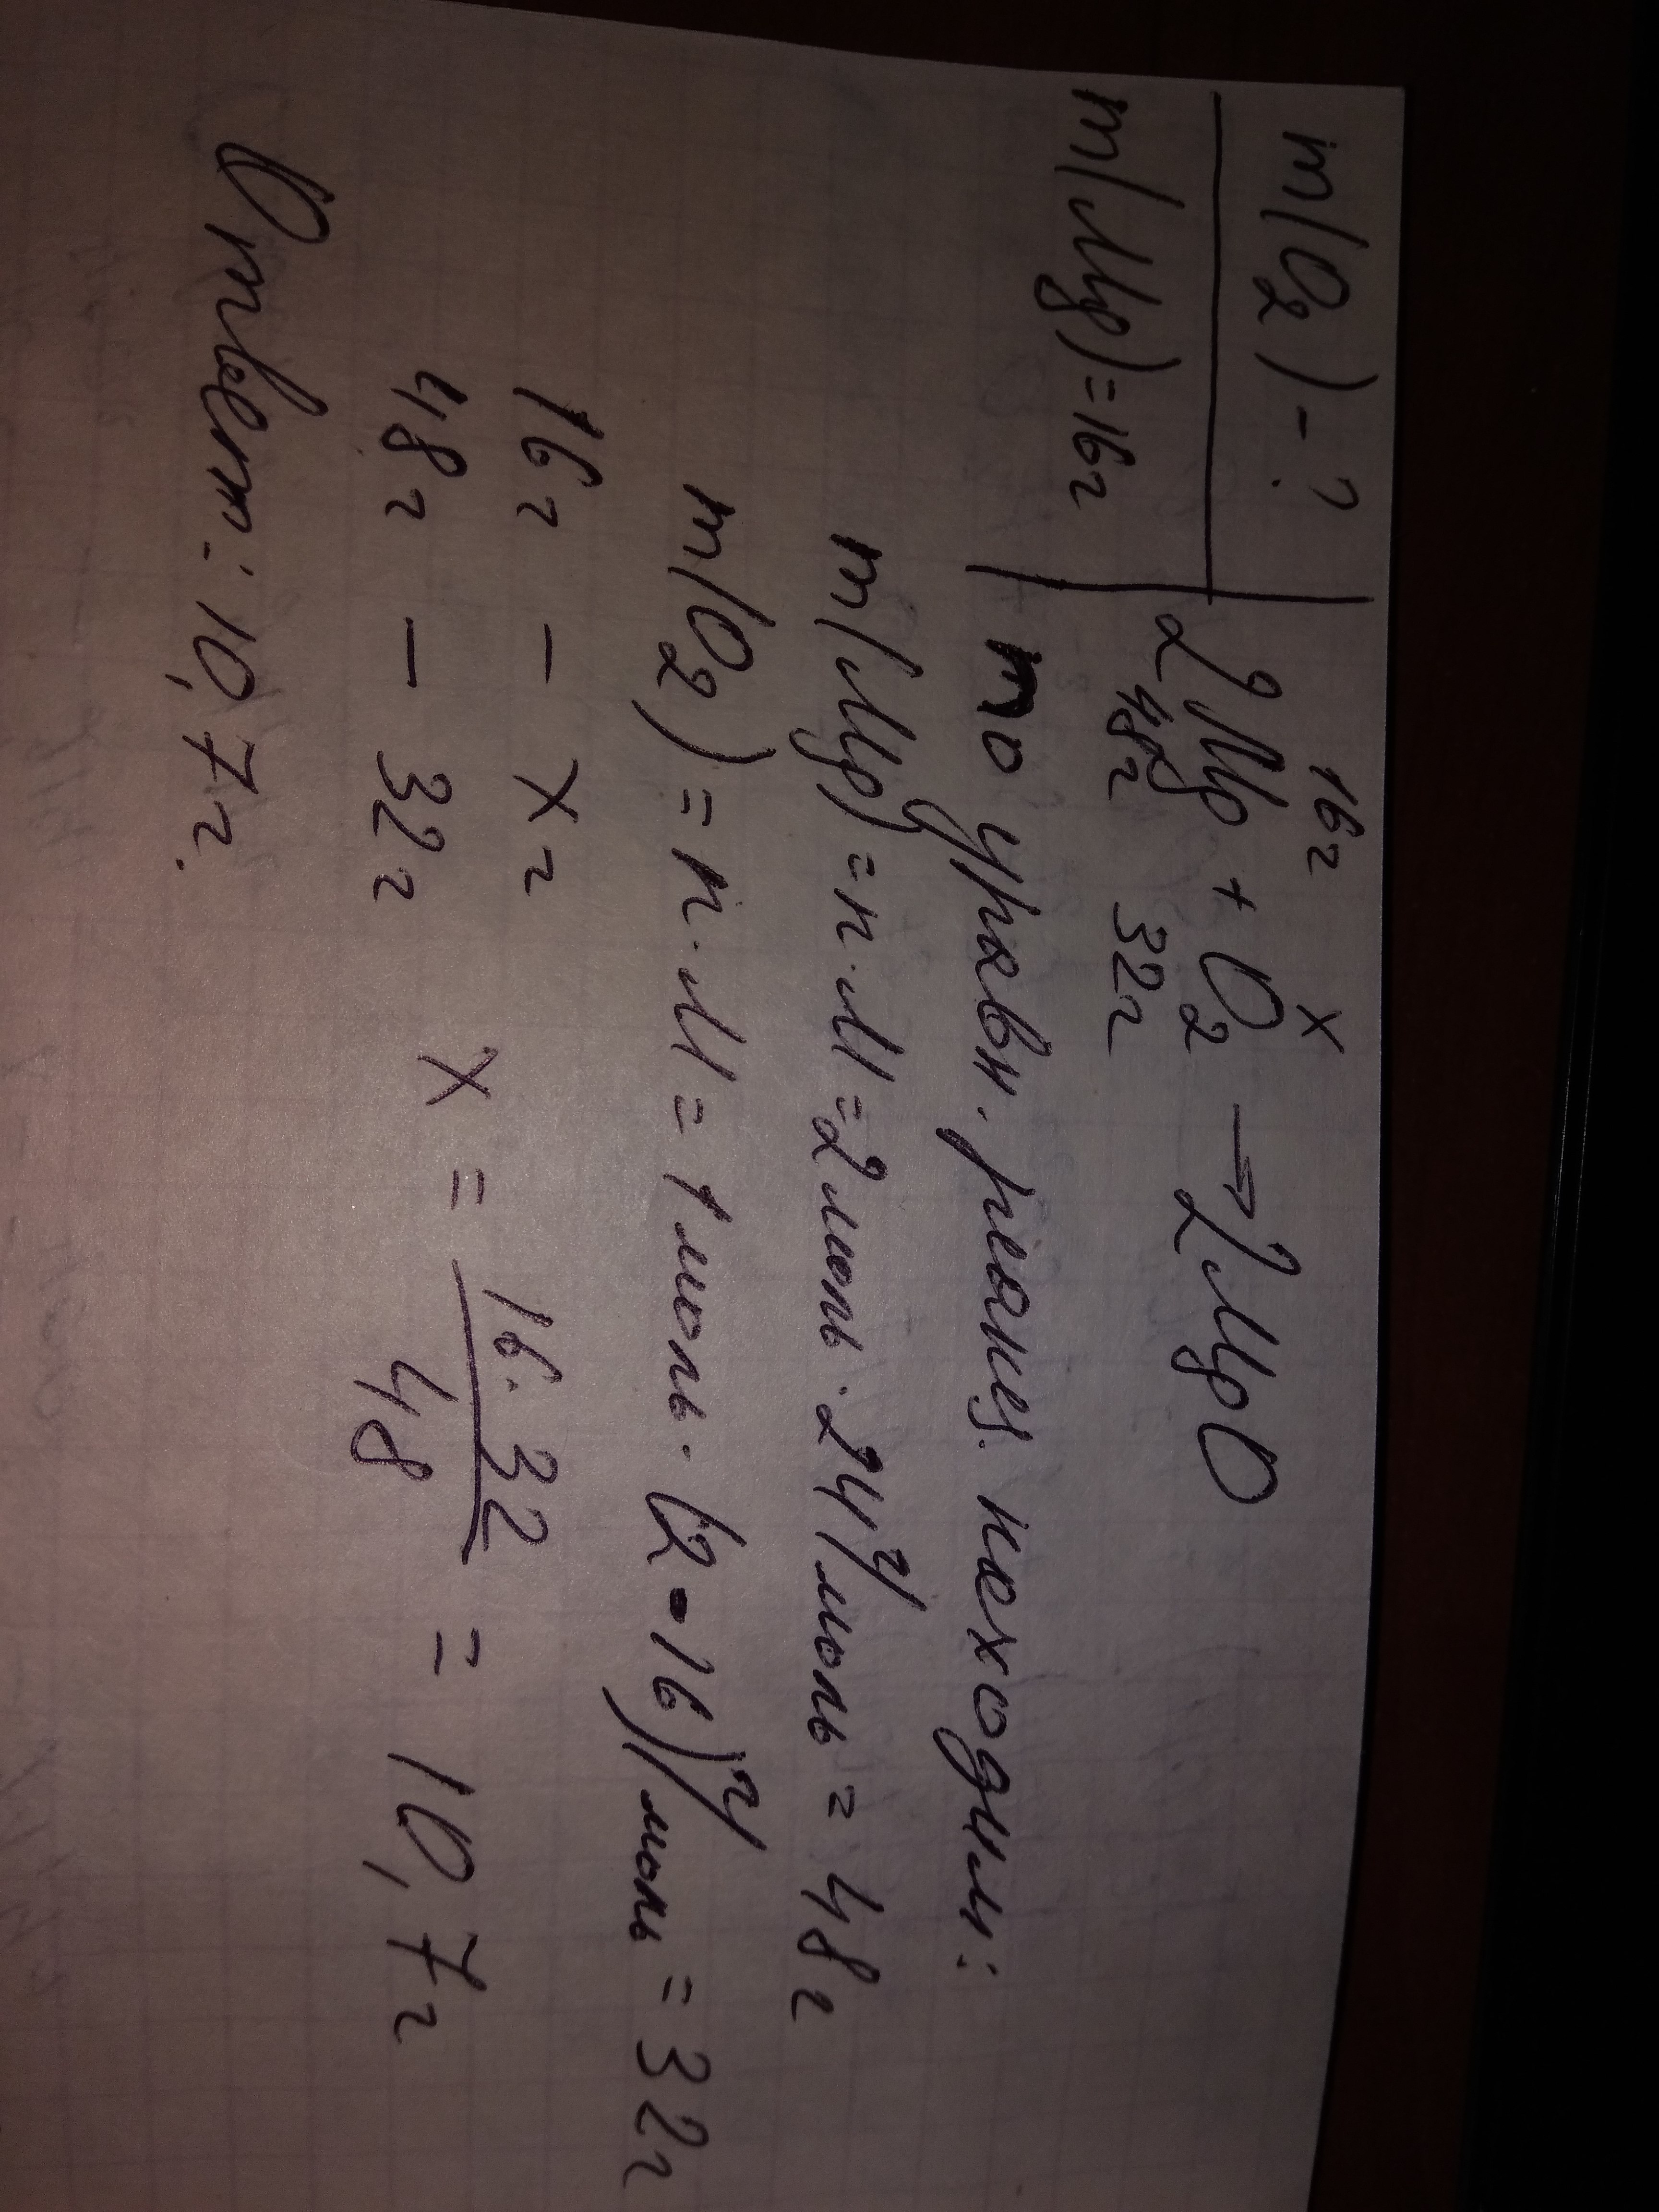 m(O₂) - ?
m(Mg) = 16г
16г x
2Mg + O₂ → 2MgO
48г 32г
по уравн. реакц. находим:
m(Mg) = n·M = 2моль · 24 г/моль = 48г
m(O₂) = n·M = 1 моль · (2•16) г/моль = 32г
16г - x г
48г - 32г
x = 16·32 / 48 = 10,7г
Ответ: 10,7г.